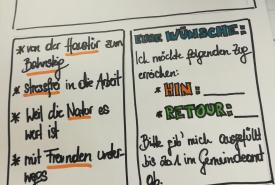 * von der Haustür zum
Bahnsteig
* stressfrei in die Arbeit
* Weil die Natur es
wert ist
* mit Freunden unter-
wegs
EURE WÜNSCHE:
Ich möchte folgenden Zug
erreichen:
* HIN:
* RETOUR:
Bitte gib' mich ausgefüllt
bis 20.1 im Gemeindeamt
ab.